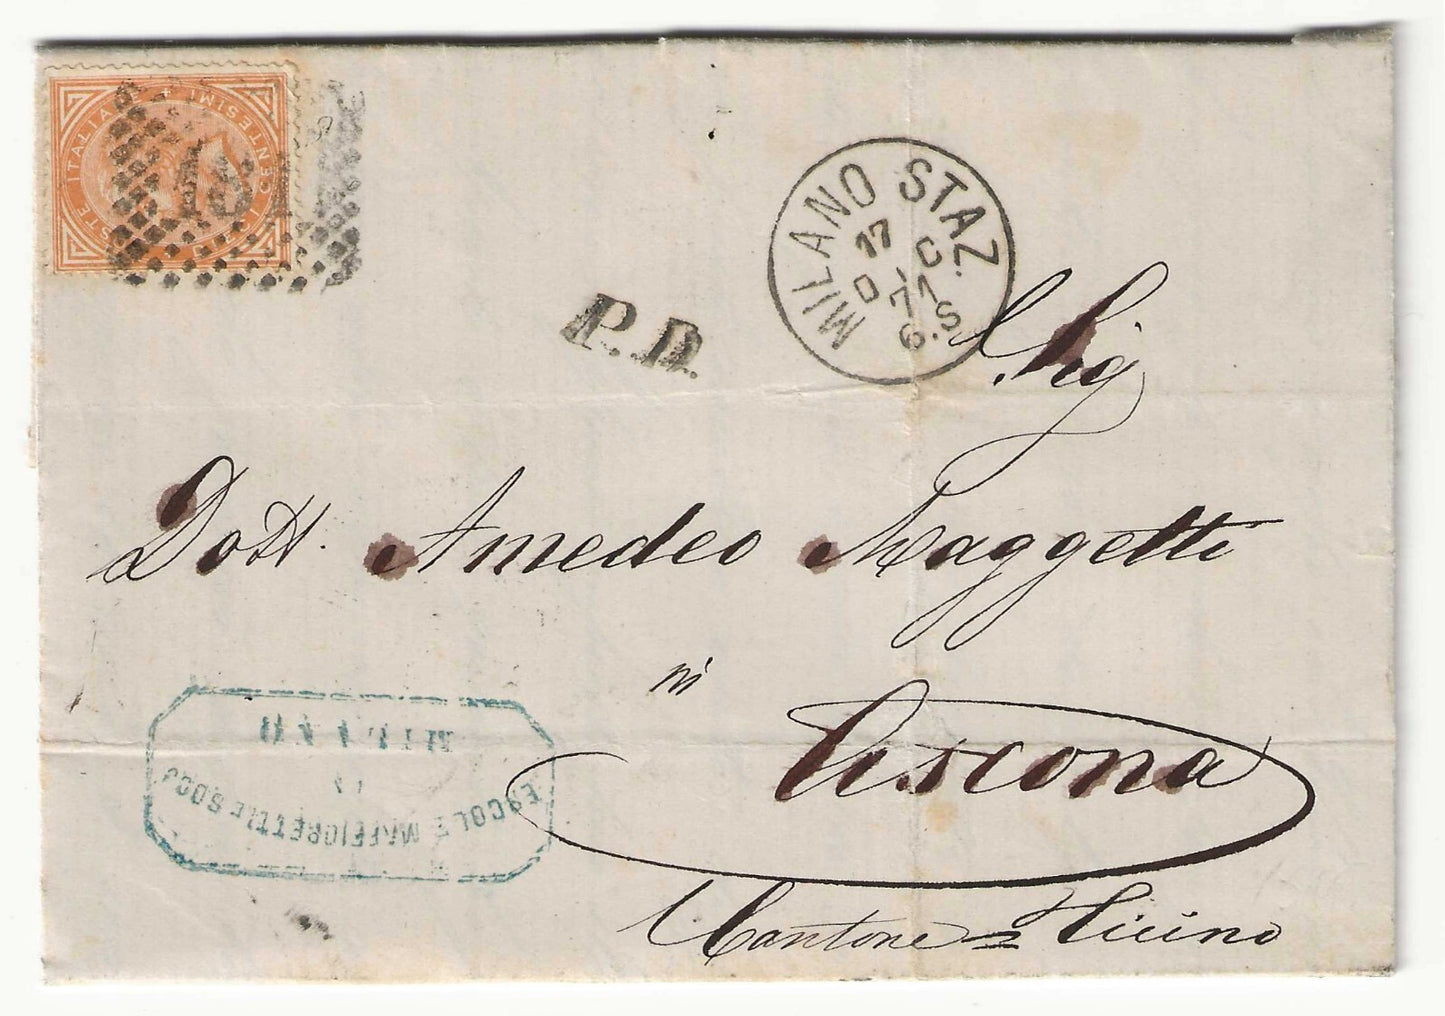 POSTE ITALIANE
CENTESIMI
181
P.D.
MILANO STAZ.
17
Sig
Dott. Amedeo Maggetti
in
Ascona
Cantone Ticino
MILANO
ERCOLE MAFFIORETTI E SOCJ